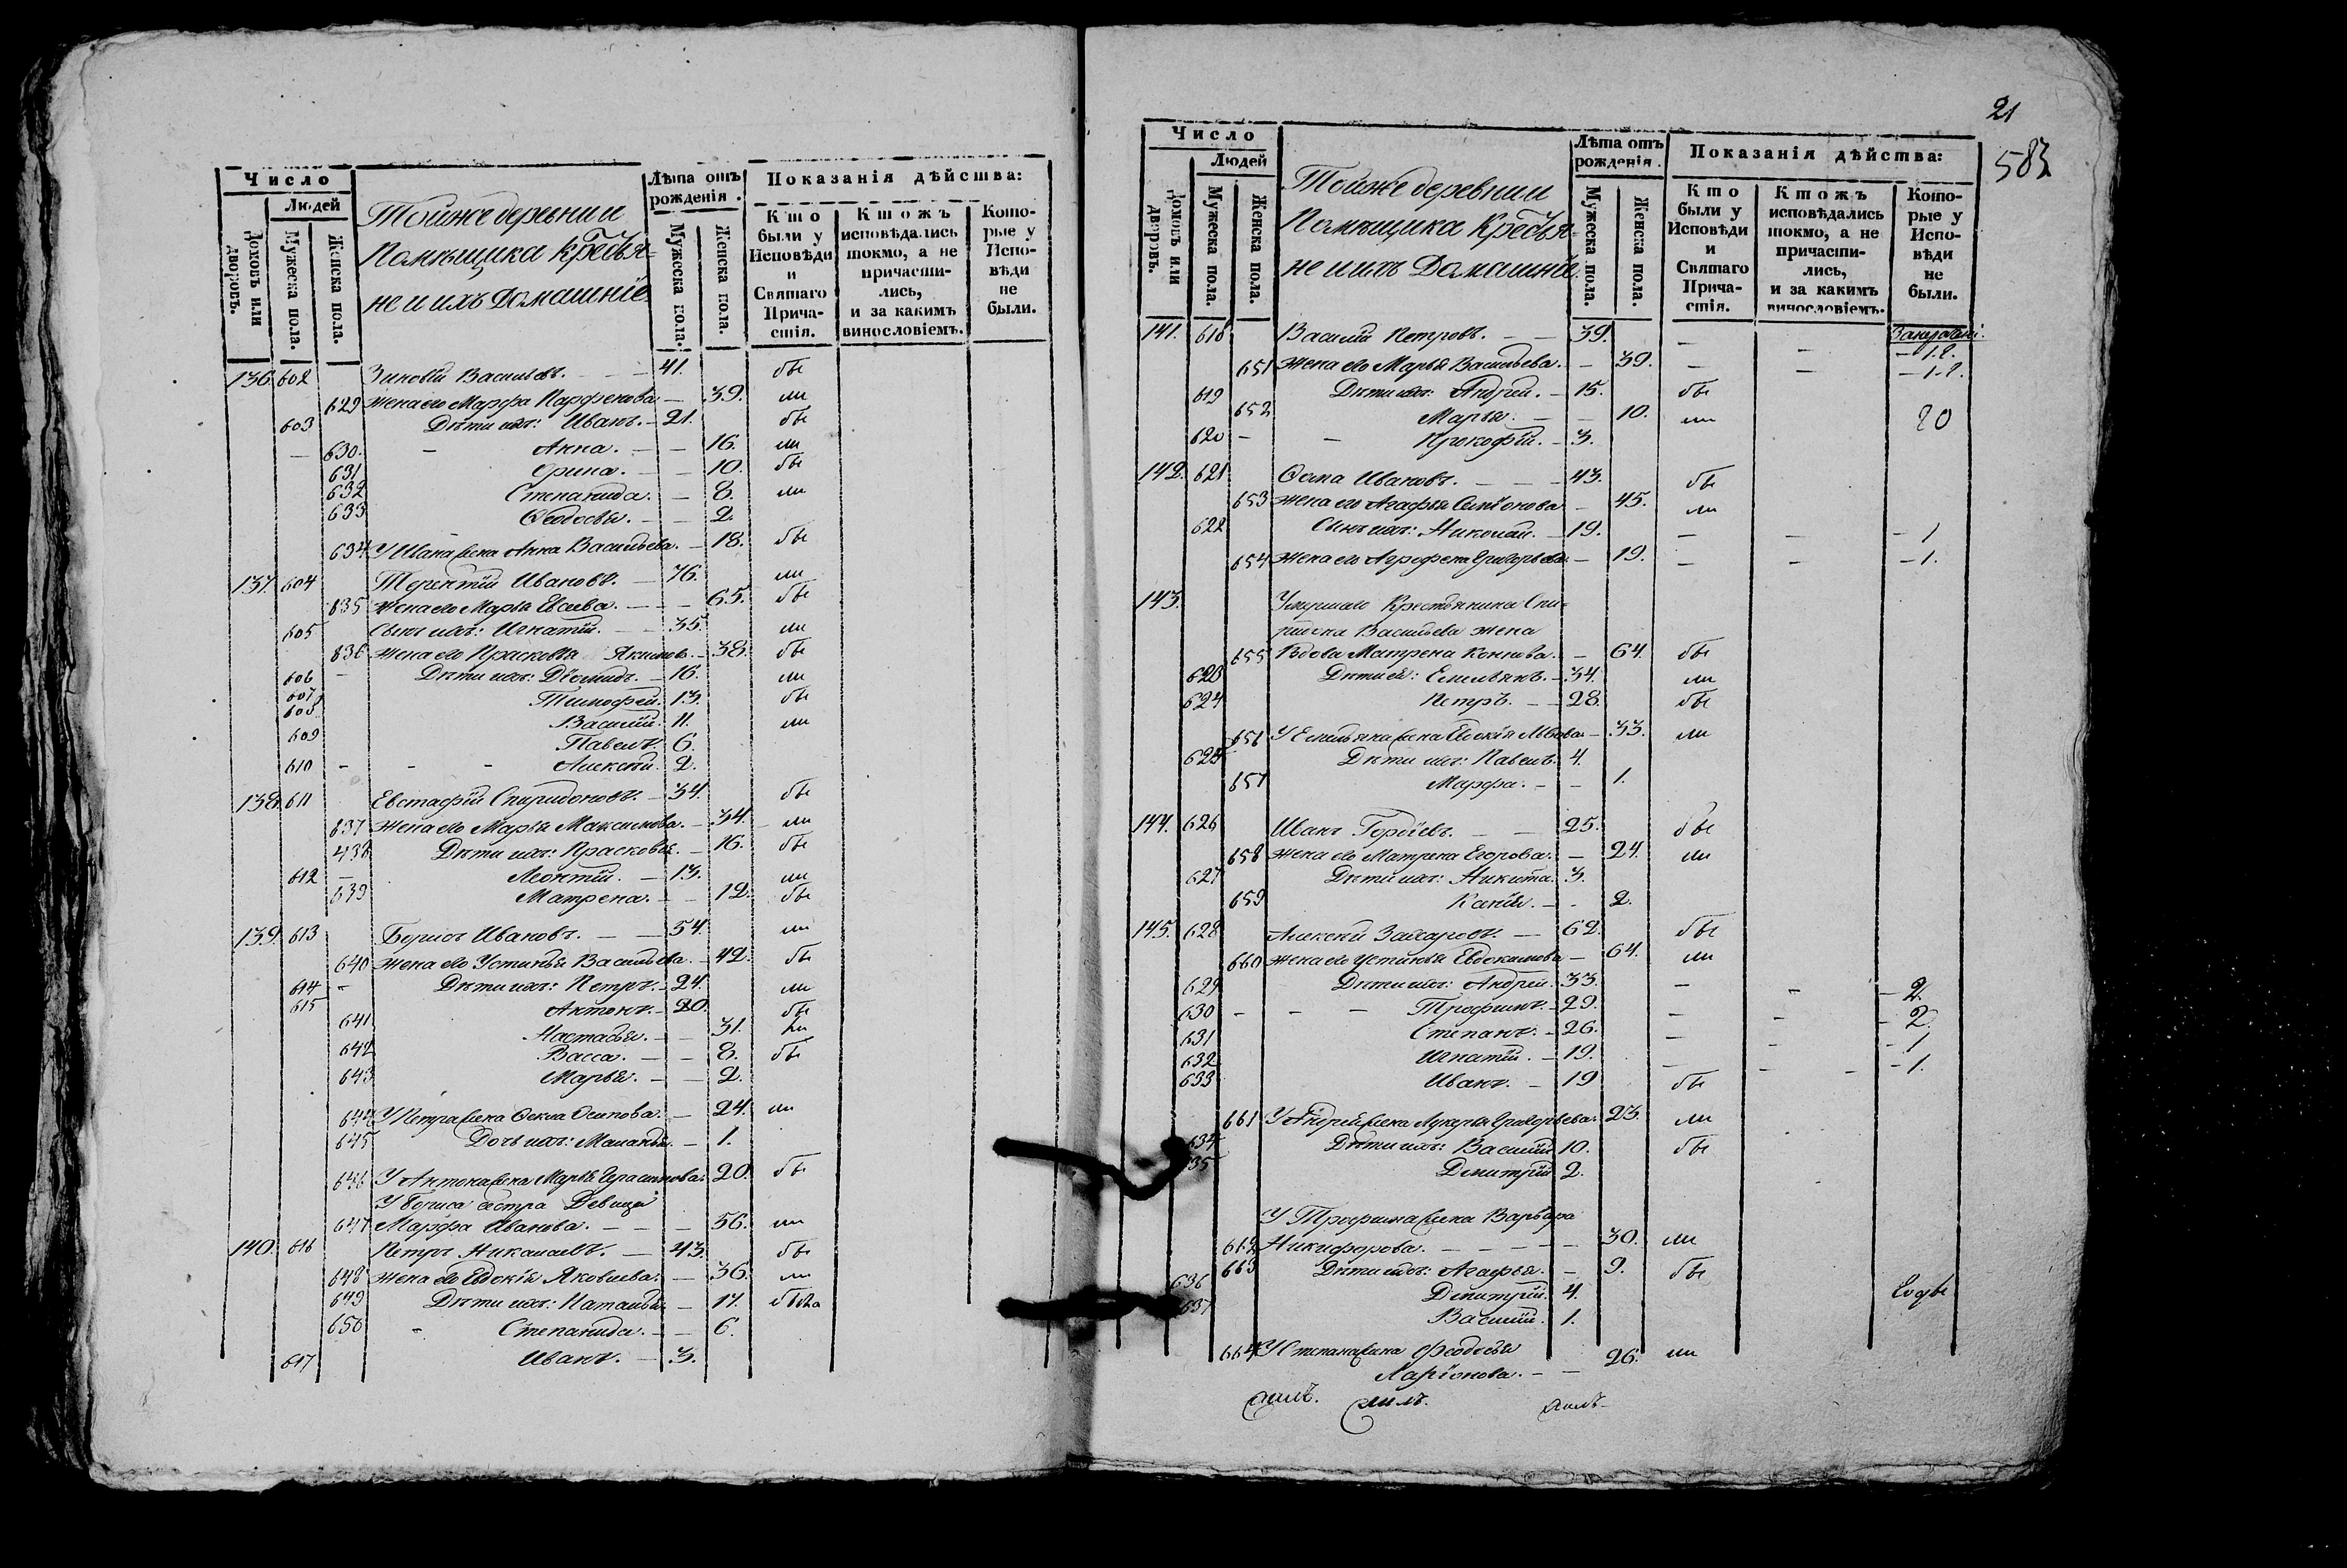 Число
Людей
Домовъ или дворовъ.
Мужеска пола.
Женска пола.
Тойже деревни и
Помѣщика крестья-
не и ихъ домашніе
Лѣта отъ рожденія.
Мужеска пола.
Женска пола.
Показанія дѣйства:
Кто были у Исповѣди и Святаго Прича-стія.
Ктожъ исповѣдались токмо, а не причасти-лись, и за какимъ винословіемъ.
Кото-рые у Испо-вѣди не были.
136 602 Зиновій Васильевъ. 41. бы
629 жена его Марфа Парфенова 39. ли
603 Дѣти ихъ: Иванъ. 21. бы
630. Анна. 16. ли
631 Орина. 10. бы
632 Степанида. 8. ли
633 Ѳеодосья. 2.
634 У Ивана жена Анна Васильева. 18. бы
137. 604 Терентій Ивановъ. 76. ли
635 жена его Марья Евсеева. 65. бы
605 Сынъ ихъ: Игнатій. 35. ли
636 жена его Прасковья Якимова. 38. бы
606 Дѣти ихъ: Діомидъ. 16. ли
607 Тимофей. 13. бы
608 Василій. 11. ли
609 Павелъ. 6.
610 Алексѣй. 2.
138. 611 Евстафій Спиридоновъ. 34. бы
637 жена его Марья Максимова. 34. ли
438 Дѣти ихъ: Прасковья. 16. бы
612 Леонтій. 13. ли
639 Матрена. 12. бы
139. 613 Борисъ Ивановъ. 54. ли
640 жена его Устинья Васильева. 42. бы
614 Дѣти ихъ: Петръ. 24. ли
615 Антонъ. 20. бы
641 Настасья. 31. ли
642 Васса. 8. бы
643 Марья. 2.
644 У Петра жена Фекла Осипова. 24. ли
645 Дочь ихъ: Маланья. 1.
646 У Антона жена Марья Герасимова. 20. бы
У Бориса сестра Девица
647 Марфа Иванова. 56. ли
140. 616 Петръ Николаевъ. 43. бы
648 жена его Евдокія Яковлева. 36. ли
649 Дѣти ихъ: Наталья 17.
650 Степанида. 6.
617 Иванъ. 3.
21
583
Число
Людей
Домовъ или дворовъ.
Мужеска пола.
Женска пола.
Тойже деревни и
Помѣщика Крестья-
не и ихъ Домашніе
Лѣта отъ рожденія.
Мужеска пола.
Женска пола.
Показанія дѣйства:
Кто были у Исповѣди и Святаго Прича-стія.
Ктожъ исповѣдались токмо, а не причасти-лись, и за какимъ винословіемъ.
Кото-рые у Испо-вѣди не были.
141. 618 Василій Петровъ. 39. 1.2.
651 жена его Марья Васильева. 39. 1.2.
619 Дѣти ихъ: Андрей. 15. бы
652 Марья. 10. ли
620 Прокофій. 3.
142. 621 Ѳома Ивановъ. 43. бы
653 жена его Агафья Семіонова 45. ли
622 Сынъ ихъ: Николай. 19. 1
654 жена его Агрофена Григорьева 19. 1.
143. Умершаго Крестьянина Спи-
ридона Васильева жена
655 Вдова Матрена Конкова. 64. бы
623 Дѣти ея: Емельянъ. 34. ли
624 Петръ. 28. бы
656 У Емельяна жена Евдокія Львова 33. ли
625 Дѣти ихъ: Павелъ. 4.
657 Марфа. 1.
144. 626 Иванъ Гордѣевъ. 25. бы
658 жена его Матрена Егорова. 24. ли
627 Дѣти ихъ: Никита. 3.
659 2.
145. 628 Алексѣй Захаровъ. 62. бы
660 жена его Устинья Евдокимова 64. ли
629 Дѣти ихъ: Андрей. 33. 2.
630 Трофимъ. 29. 2.
631 Степанъ. 26. 1
632 Игнатій. 19. 1.
633 Иванъ. 19 бы
661 У Андрея жена Лукерья Григорьева. 23. ли
634 Дѣти ихъ: Василій 10. бы
635 Димитрій 2.
У Трофима жена Варвара
662 Никифорова. 30. ли
663 Дѣти ихъ: Агафья. 9. бы
636 Димитрій. 4.
637 Василій. 1.
664 У Степана жена Ѳеодосья
Ларіонова. 26. ли